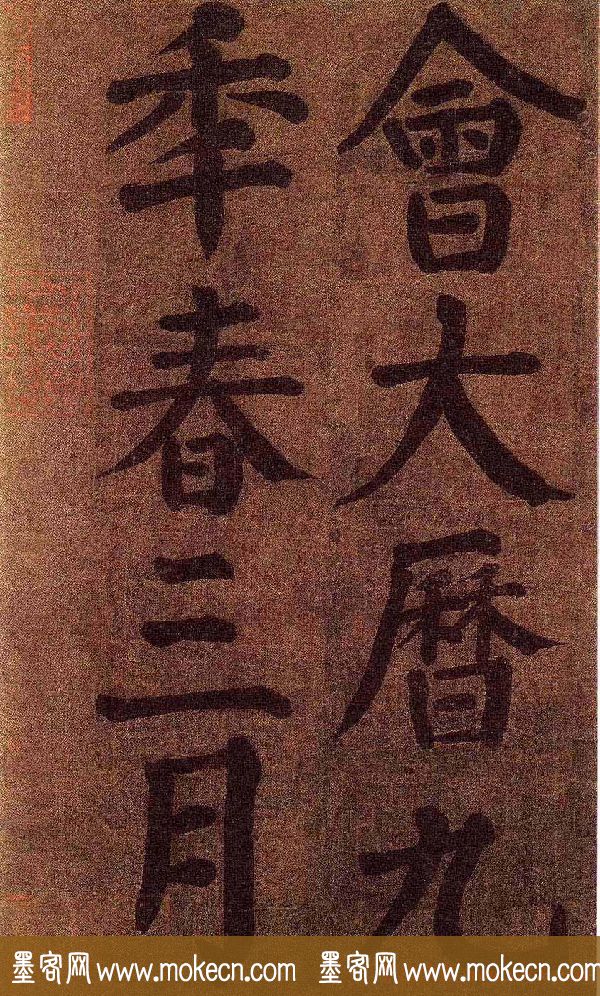 會大曆九
年春三月
墨客网 www.mokecn.com 墨客网 www.mokecn.com